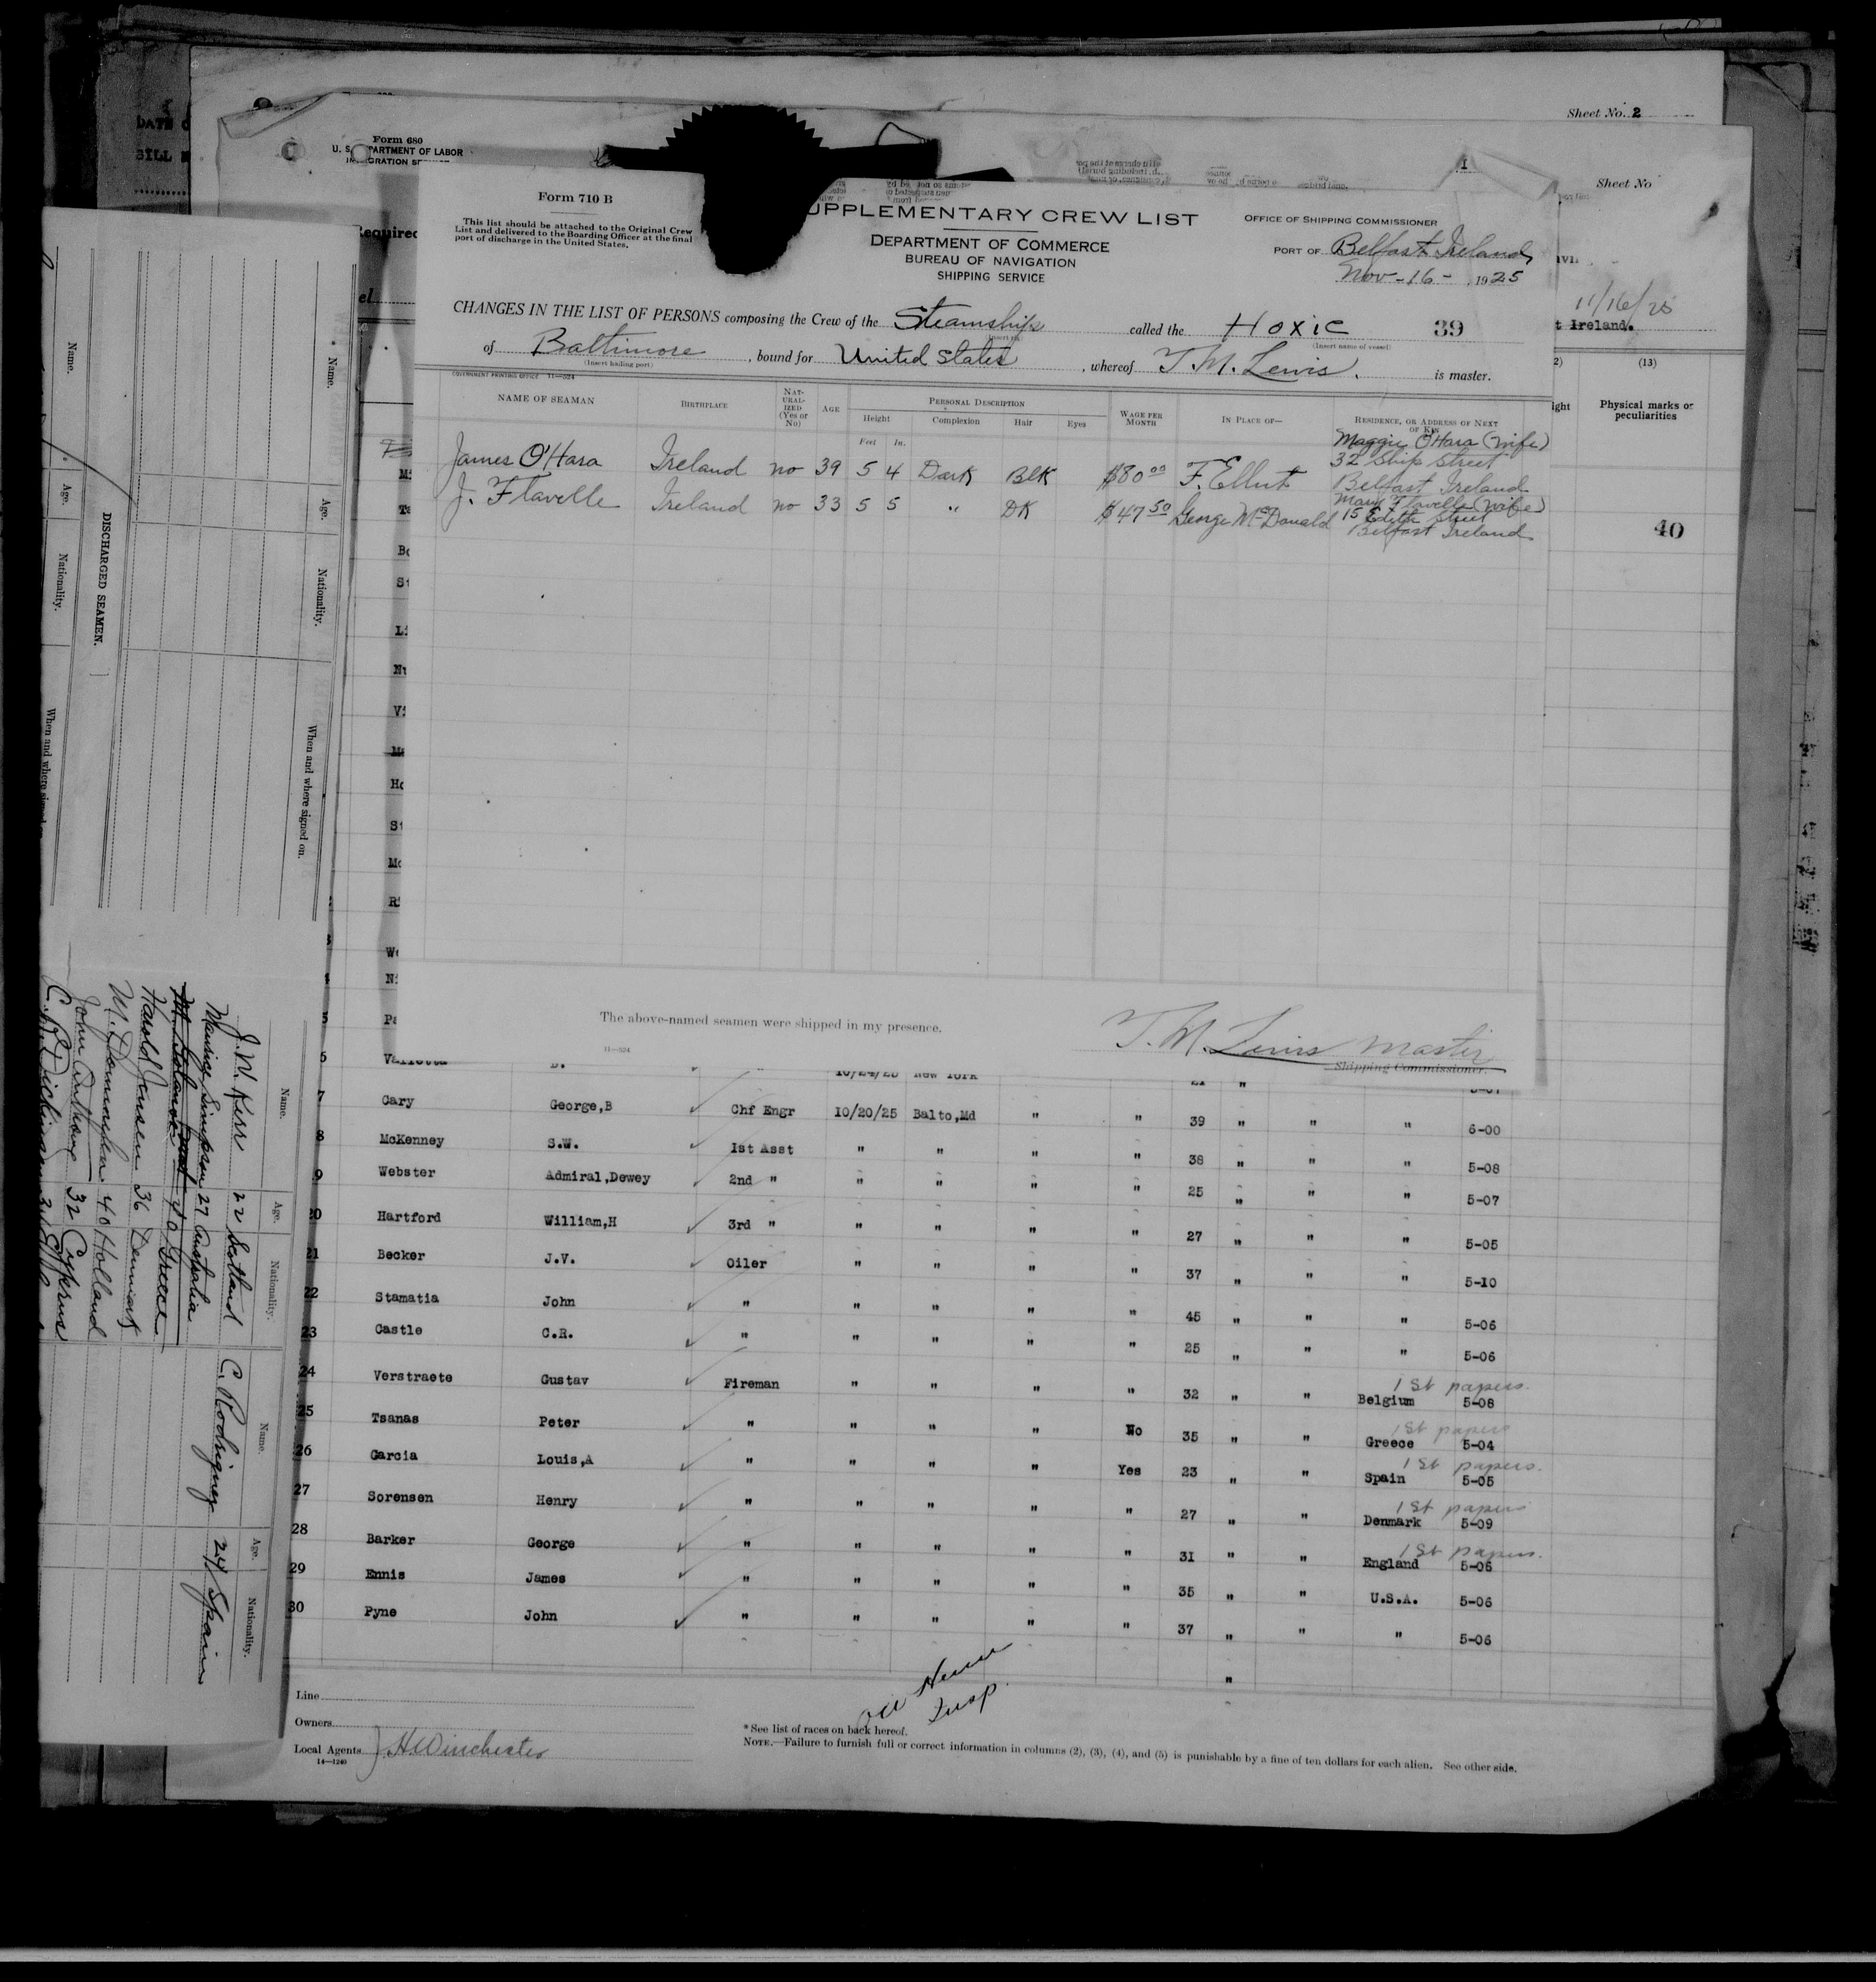 Sheet No. 2
Form 680
U. S. DEPARTMENT OF LABOR
Sheet No
Form 710 B
This list should be attached to the Original Crew
List and delivered to the Boarding Officer at the final
port of discharge in the United States.
SUPPLEMENTARY CREW LIST
DEPARTMENT OF COMMERCE
BUREAU OF NAVIGATION
SHIPPING SERVICE
OFFICE OF SHIPPING COMMISSIONER
PORT OF Belfast Ireland
Nov-16- , 1925
11/16/25
t Ireland.
CHANGES IN THE LIST OF PERSONS composing the Crew of the Steamship called the Hoxie 39
(Insert name of vessel)
of Baltimore , bound for United States , whereof T. M. Lewis. is master.
(Insert hailing port)
GOVERNMENT PRINTING OFFICE 11—524
NAME OF SEAMAN BIRTHPLACE NAT-URAL-IZED (Yes or No) AGE PERSONAL DESCRIPTION WAGE PER MONTH IN PLACE OF— RESIDENCE, OR ADDRESS OF NEXT OF KIN
Height Complexion Hair Eyes
Feet In.
(13)
Physical marks or
peculiarities
Maggie O'Hara (wife)
James O'Hara Ireland no 39 5 4 Dark Blk $80 00 F. Elliut 32 Ship Street
Belfast Ireland
J. Flavelle Ireland no 33 5 5 " DK $47 50 George McDonald Mary Flavelle (wife)
15 Edith Street
Belfast Ireland
40
The above-named seamen were shipped in my presence.
11—524
T. M. Lewis Master
Shipping Commissioner.
10/24/25 New York 21 "
7 Cary George,B Chf Engr 10/20/25 Balto,Md " " 39 " " " 6-00
8 McKenney S.W. 1st Asst " " " " 38 " " " 5-08
9 Webster Admiral,Dewey 2nd " " " " " 25 " " " 5-07
20 Hartford William,H 3rd " " " " " 27 " " " 5-05
21 Becker J.V. Oiler " " " " 37 " " " 5-10
22 Stamatia John " " " " " 45 " " " 5-06
23 Castle C.R. " " " " " 25 " " " 5-06
24 Verstraete Gustav Fireman " " " " 32 " " Belgium 5-08 1st papers.
25 Tsanas Peter " " " " No 35 " " Greece 5-04 1st papers
26 Garcia Louis,A " " " " Yes 23 " " Spain 5-05 1st papers.
27 Sorensen Henry " " " " " 27 " " Denmark 5-09 1st papers
28 Barker George " " " " " 31 " " England 5-06 1st papers.
29 Ennis James " " " " " 35 " " U.S.A. 5-06
30 Pyne John " " " " " 37 " " " 5-06
Line
Owners
Local Agents J. H. Winchester
14—1240
* See list of races on back hereof.
NOTE.—Failure to furnish full or correct information in columns (2), (3), (4), and (5) is punishable by a fine of ten dollars for each alien. See other side.
Name. Age. Nationality. When and where signed on.
DISCHARGED SEAMEN.
Name. Age. Nationality.
Name. Age. Nationality.
J. W. Kerr 22 Scotland
Maurice Simpson 27 Australia
40 Greece
Harold Jensen 36 Denmark
40 Holland
John Anthony 32 Cyprus
C. Rodriguez 24 Spain